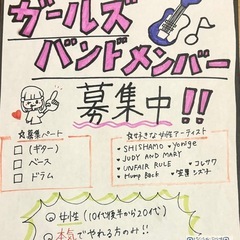 ガールズ
バンドメンバー
募集中!!
☆募集パート
□(ギター)
□ ベース
□ ドラム
☆好きな女性アーティスト
・SHISHAMO ♥yonige
・JUDY AND MARY
・UNFAIR RULE ♥コレサワ
・Hump Back ♥
◎女性(10代後半から20代)
◎本気でやれる方のみ!!